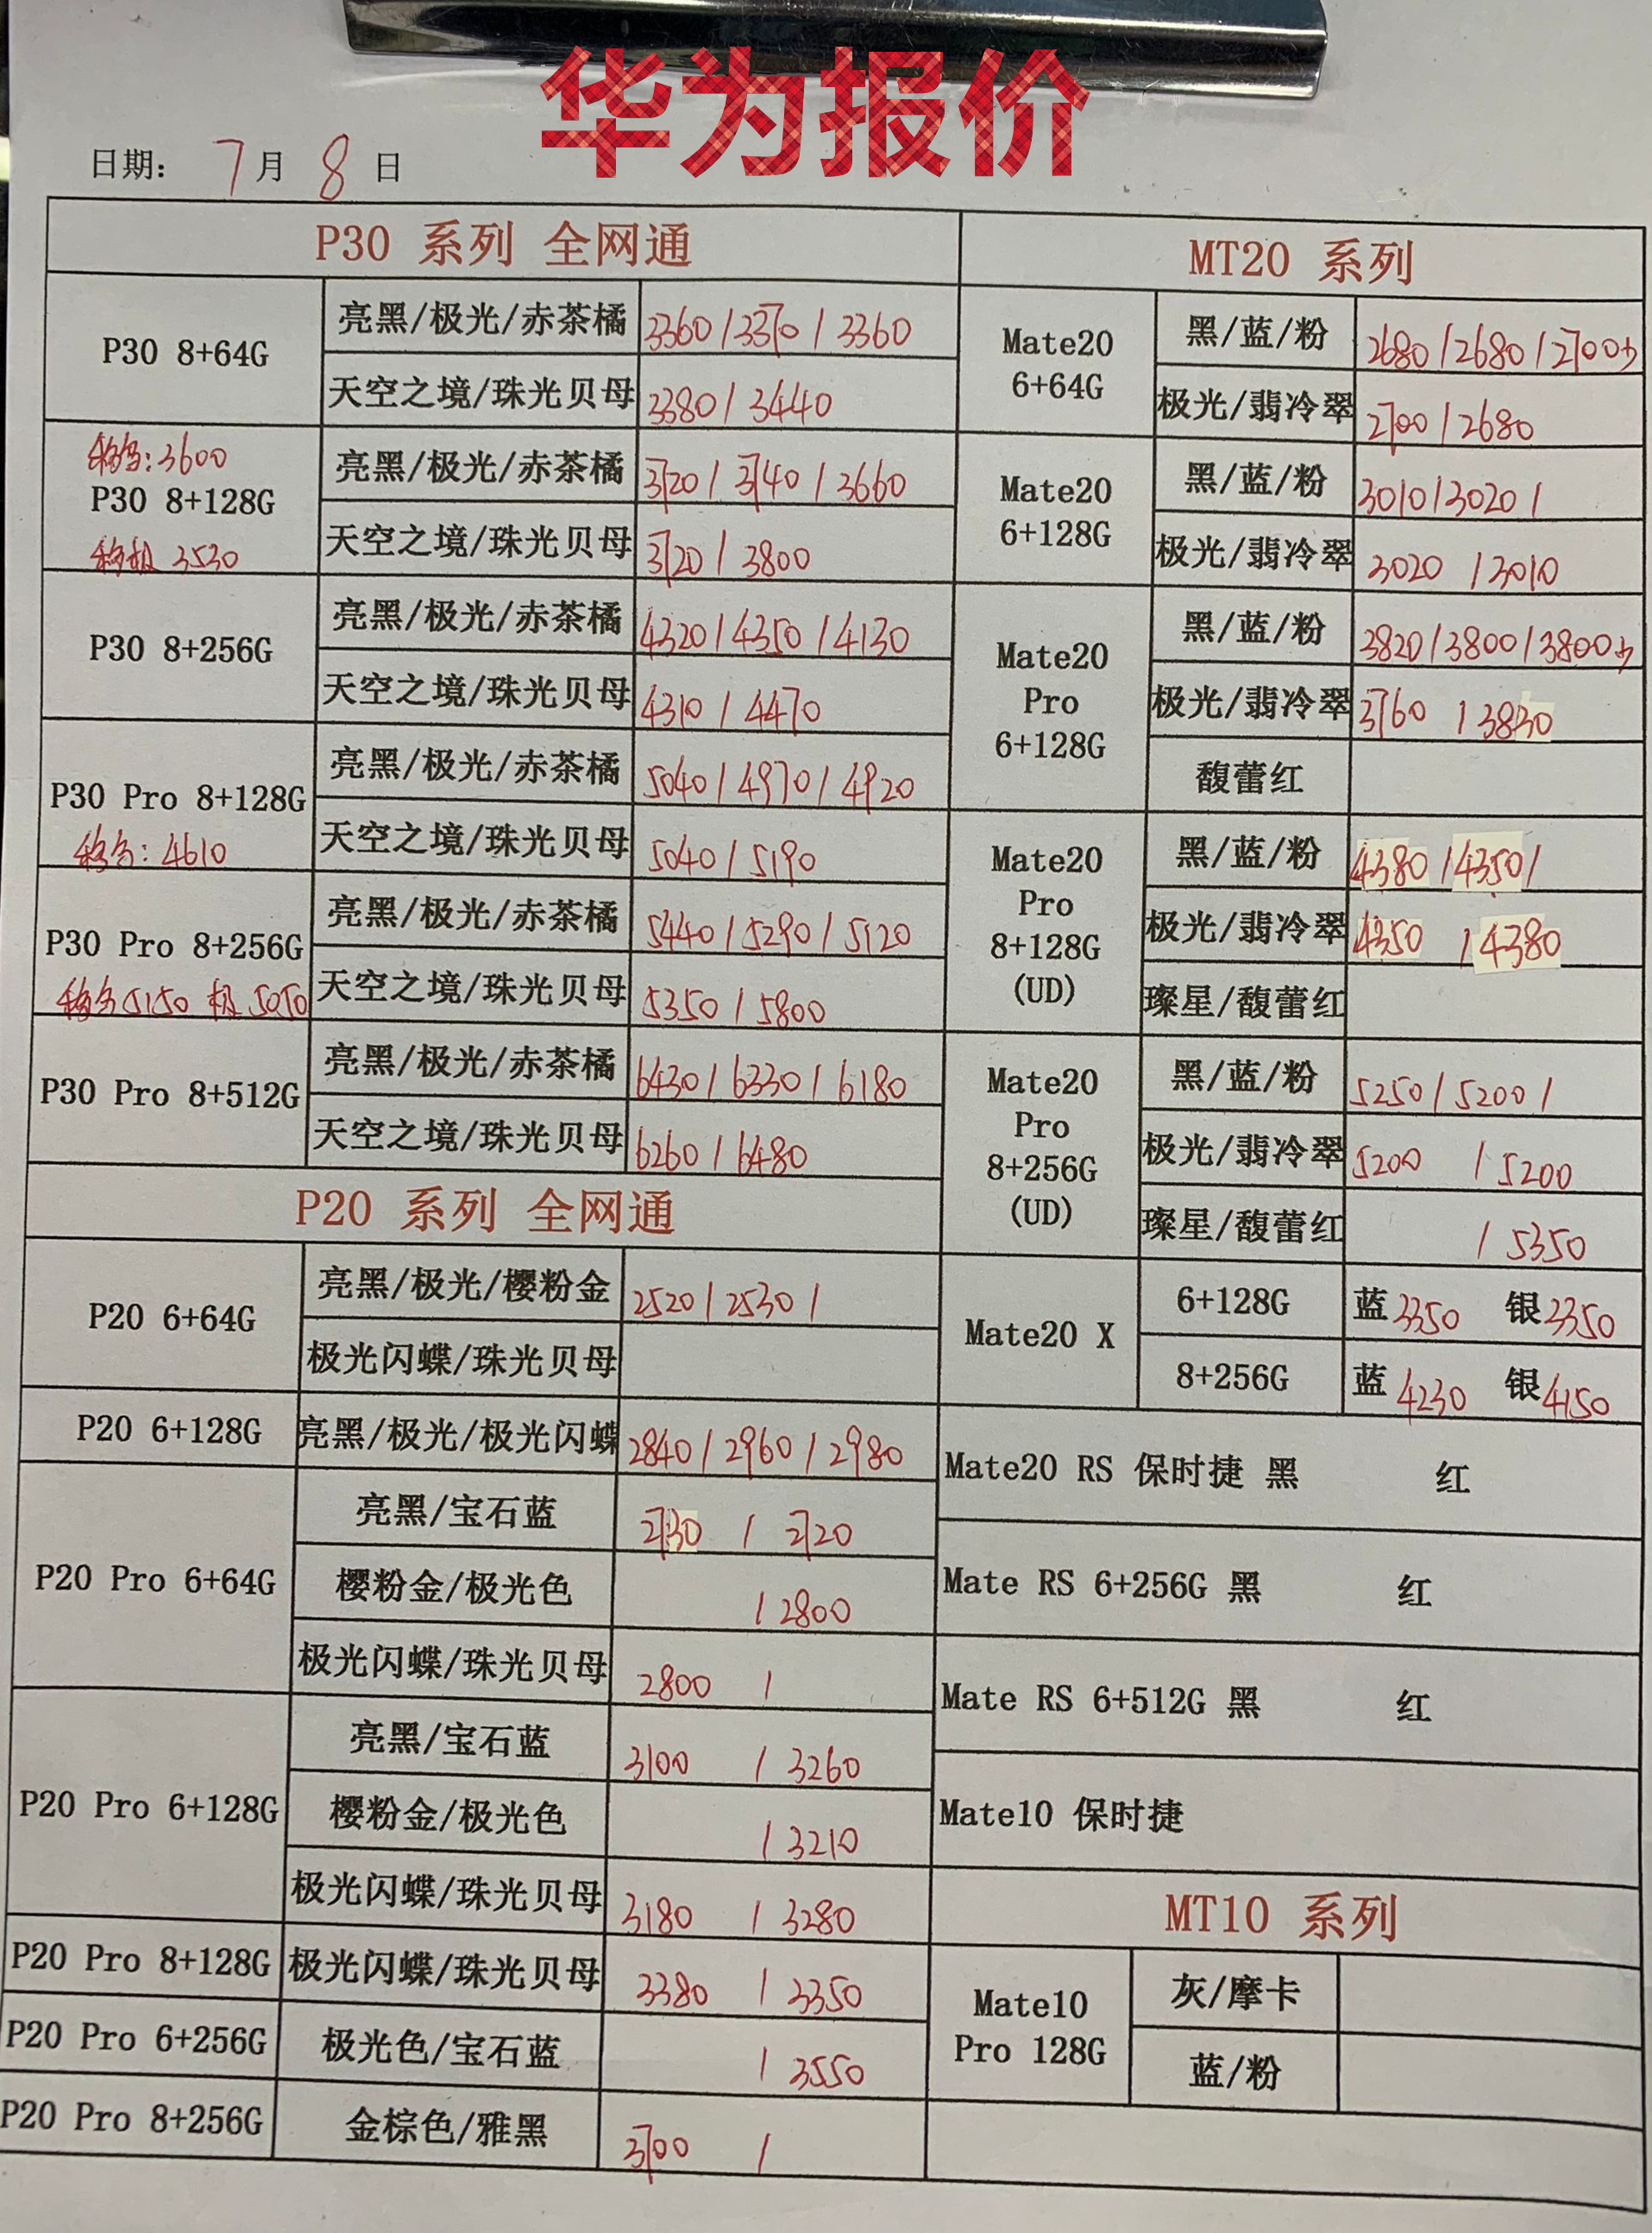 华为报价
日期: 7月8日
P30 系列 全网通
P30 8+64G
亮黑/极光/赤茶橘 3360/3370/3360
天空之境/珠光贝母 3380/3440
3600
P30 8+128G
移极 3530
亮黑/极光/赤茶橘 3720/3740/3660
天空之境/珠光贝母 3720/3800
P30 8+256G
亮黑/极光/赤茶橘 4320/4350/4130
天空之境/珠光贝母 4310/4470
P30 Pro 8+128G
4610
亮黑/极光/赤茶橘 5040/4970/4920
天空之境/珠光贝母 5040/5190
P30 Pro 8+256G
5150 极 5050
亮黑/极光/赤茶橘 5440/5290/5120
天空之境/珠光贝母 5350/5800
P30 Pro 8+512G
亮黑/极光/赤茶橘 6430/6330/6180
天空之境/珠光贝母 6260/6480
P20 系列 全网通
P20 6+64G
亮黑/极光/樱粉金 2520/2530/
极光闪蝶/珠光贝母
P20 6+128G 亮黑/极光/极光闪蝶 2840/2960/2980
P20 Pro 6+64G
亮黑/宝石蓝 2730 / 2720
樱粉金/极光色 /2800
极光闪蝶/珠光贝母 2800 /
P20 Pro 6+128G
亮黑/宝石蓝 3100 / 3260
樱粉金/极光色 / 3210
极光闪蝶/珠光贝母 3180 / 3280
P20 Pro 8+128G 极光闪蝶/珠光贝母 3380 / 3350
P20 Pro 6+256G 极光色/宝石蓝 / 3550
P20 Pro 8+256G 金棕色/雅黑 3700 /
MT20 系列
Mate20
6+64G
黑/蓝/粉 2680/2680/2700
极光/翡冷翠 2700/2680
Mate20
6+128G
黑/蓝/粉 3010/3020/
极光/翡冷翠 3020 /3010
Mate20
Pro
6+128G
黑/蓝/粉 3820/3800/3800
极光/翡冷翠 3760 /3830
馥蕾红
Mate20
Pro
8+128G
(UD)
黑/蓝/粉 4380/4350/
极光/翡冷翠 4350 /4380
璨星/馥蕾红
Mate20
Pro
8+256G
(UD)
黑/蓝/粉 5250/5200/
极光/翡冷翠 5200 /5200
璨星/馥蕾红 /5350
Mate20 X
6+128G 蓝3350 银3350
8+256G 蓝4230 银4150
Mate20 RS 保时捷 黑 红
Mate RS 6+256G 黑 红
Mate RS 6+512G 黑 红
Mate10 保时捷
MT10 系列
Mate10
Pro 128G
灰/摩卡
蓝/粉